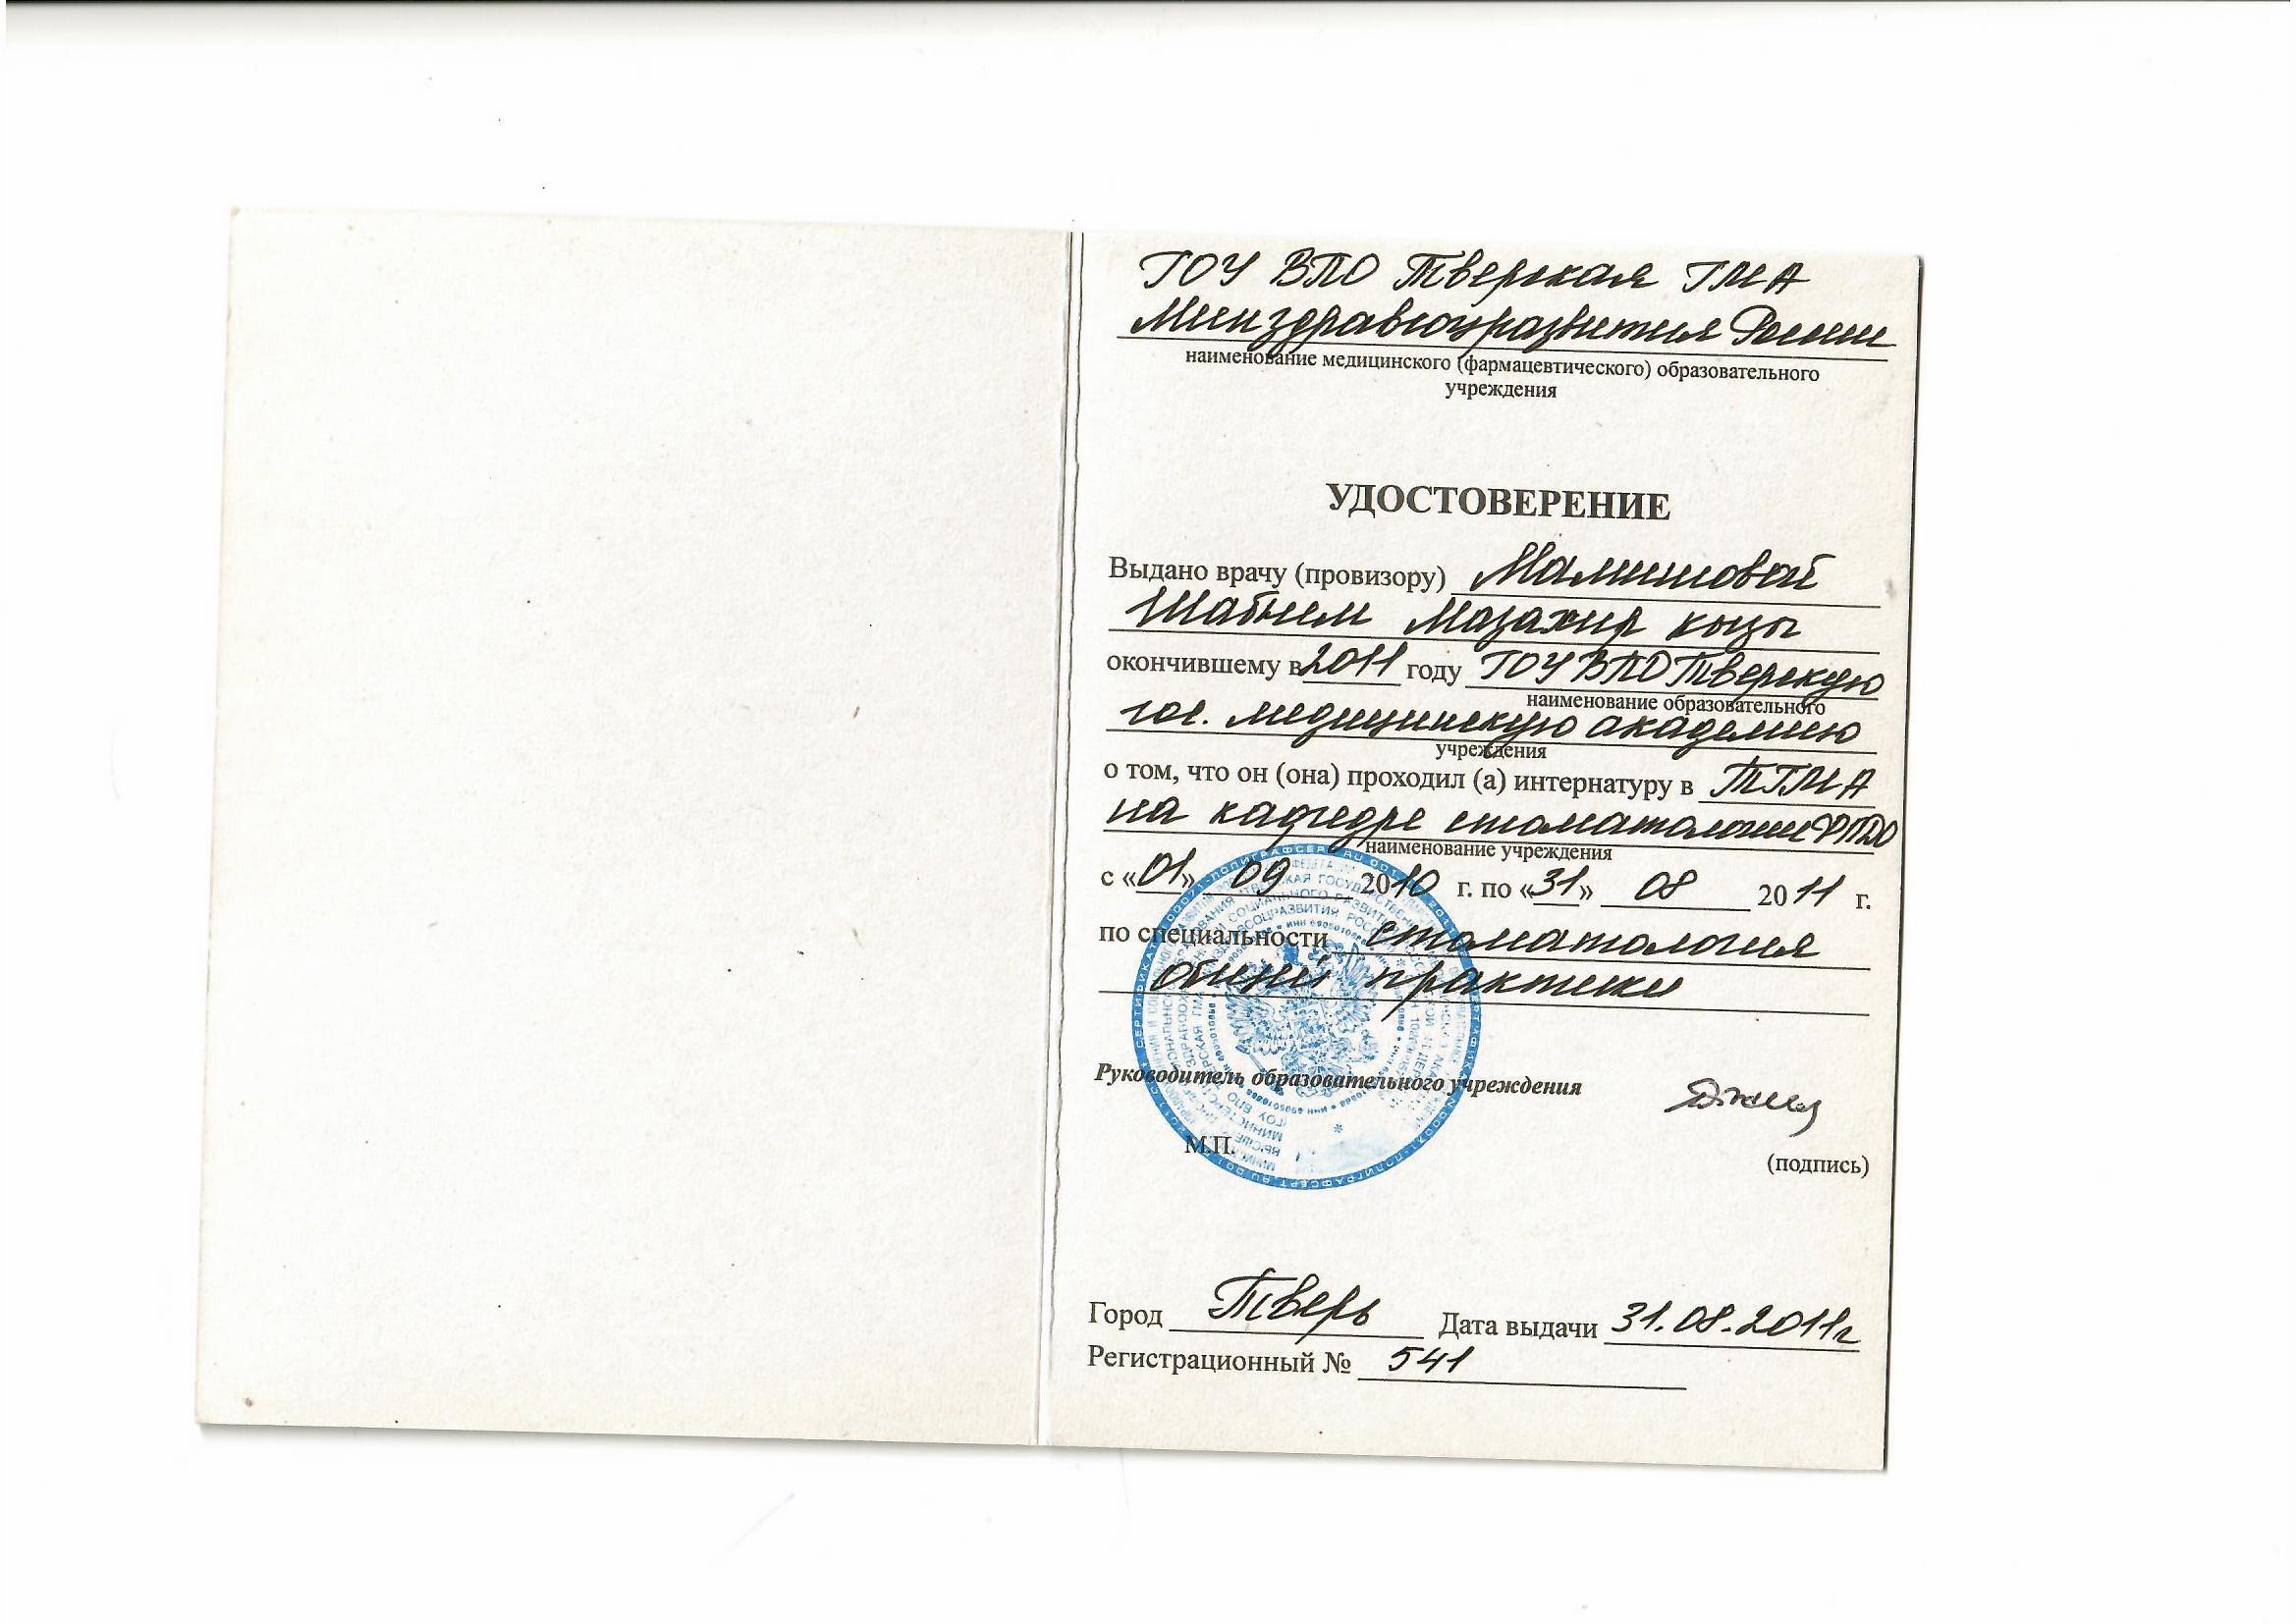 ГОУ ВПО Тверская ГМА
Минздравсоцразвития России
наименование медицинского (фармацевтического) образовательного
учреждения
УДОСТОВЕРЕНИЕ
Выдано врачу (провизору) Мамишовой
Шабнем Мазахир кызы
окончившему в 2011 году ГОУ ВПО Тверскую
наименование образовательного
гос. медицинскую академию
учреждения
о том, что он (она) проходил (а) интернатуру в ТГМА
на кафедре стоматологии ФПДО
наименование учреждения
с «01» 09 2010 г. по «31» 08 2011 г.
по специальности стоматология
общей практики
Руководитель образовательного учреждения
М.П.
(подпись)
Город Тверь Дата выдачи 31.08.2011г
Регистрационный № 541